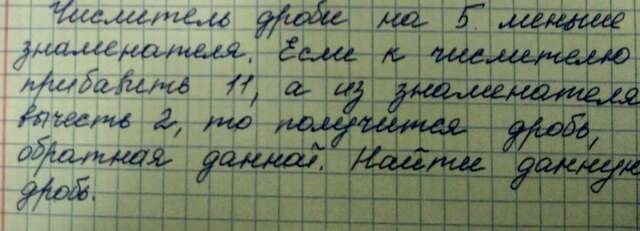 Числитель дроби на 5 меньше
знаменателя. Если к числителю
прибавить 11, а из знаменателя
вычесть 2, то получится дробь,
обратная данной. Найти данную
дробь.